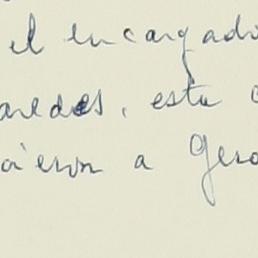 el encargado
aredes, esta
ieron a Gero